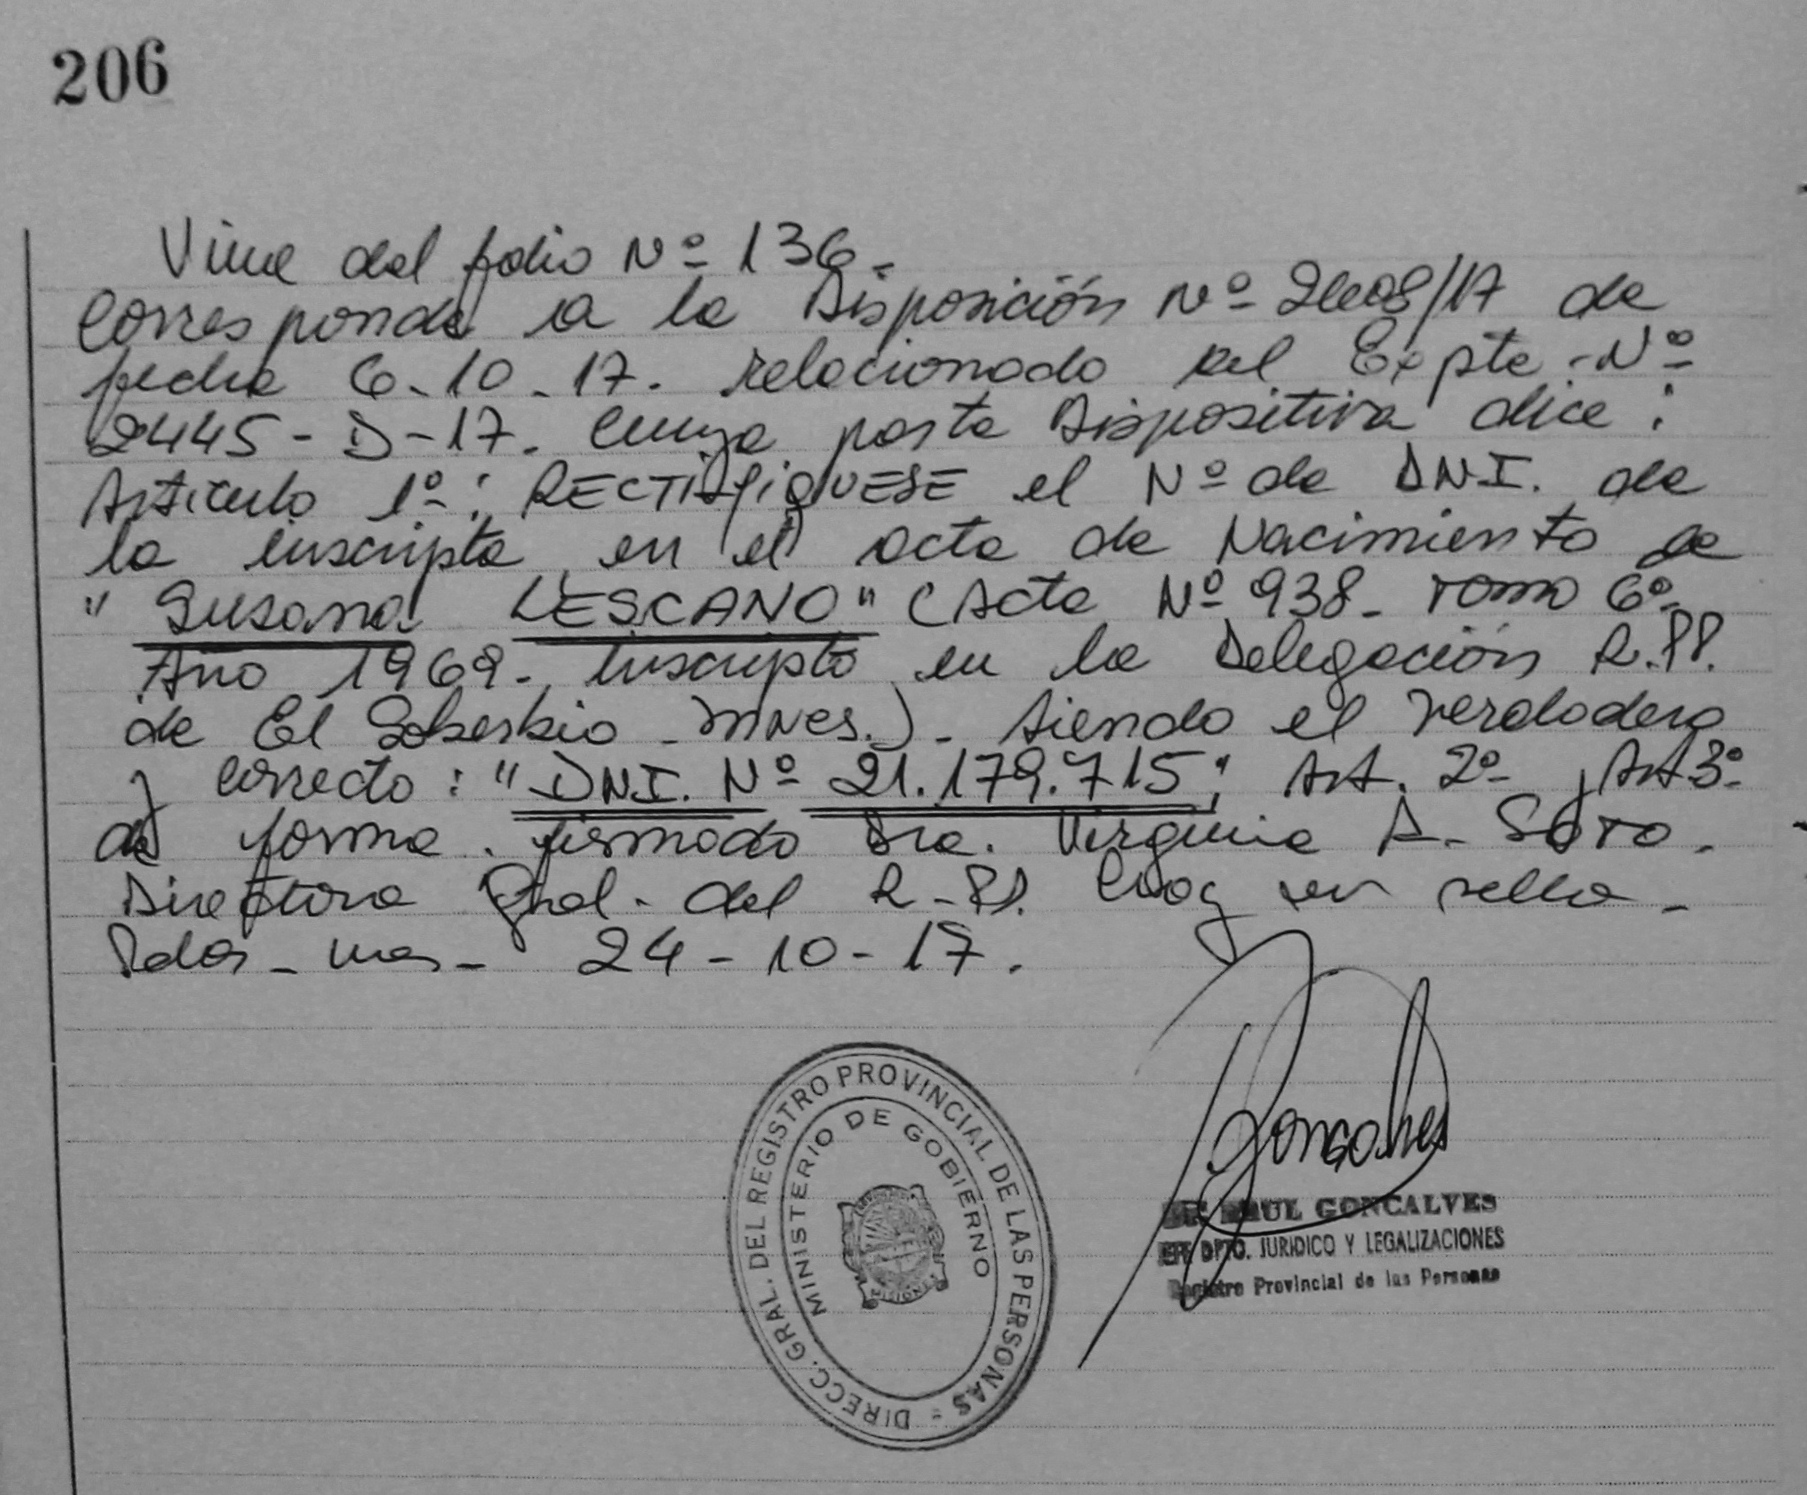 206
Viene del folio Nº 136.
Corresponde a la Disposición Nº 2608/17 de
fecha 6-10-17. relacionado al Expte. Nº
2445-D-17. Cuya parte Dispositiva dice:
Artículo 1º: RECTIFIQUESE el Nº de DNI. de
la inscripta en el acta de Nacimiento de
"Susana LESCANO" (Acta Nº 938- Tomo 6º-
Año 1969- inscripto en la Delegación R.PP.
de El Soberbio - Mnes.) - Siendo el verdadero
y correcto: "DNI. Nº 21.179.715"; Art. 2º y Art 3º
de forma. firmado Dra. Virginia A. SOTO.
Directora Gral. del R.PP. hay un sello.
Pdas - Mnes - 24-10-17.
Goncalves
DIRECC. GRAL. DEL REGISTRO PROVINCIAL DE LAS PERSONAS
MINISTERIO DE GOBIERNO
MISIONES
RAUL GONCALVES
JEFE DPTO. JURIDICO Y LEGALIZACIONES
Registro Provincial de las Personas